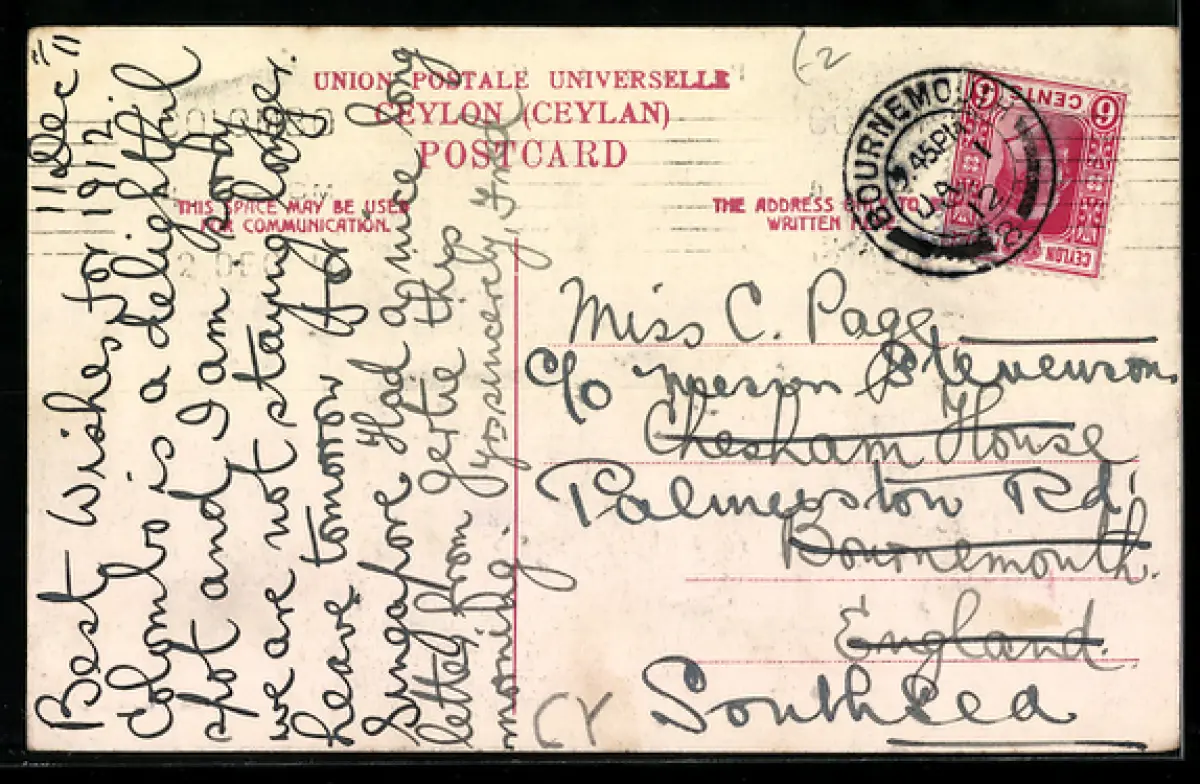 UNION POSTALE UNIVERSELLE
CEYLON (CEYLAN)
POSTCARD
THIS SPACE MAY BE USED
FOR COMMUNICATION.
THE ADDRESS TO
WRITTEN
11 Dec 11
Best Wishes for 1912.
Colombo is a delightful
spot and I am sorry
we are not staying longer.
leave tomorrow for
Singapore Had a nice long
letter from Gertie this
morning. Yrs sincerely, Fred
(-2
BOURNEMOU
45PM
JA 1
12
6 CENTS 6
CEYLON
Miss C. Page
c/o Stevenson
Chesham House
Palmerston Rd.
Bournemouth.
England.
Southsea
CY